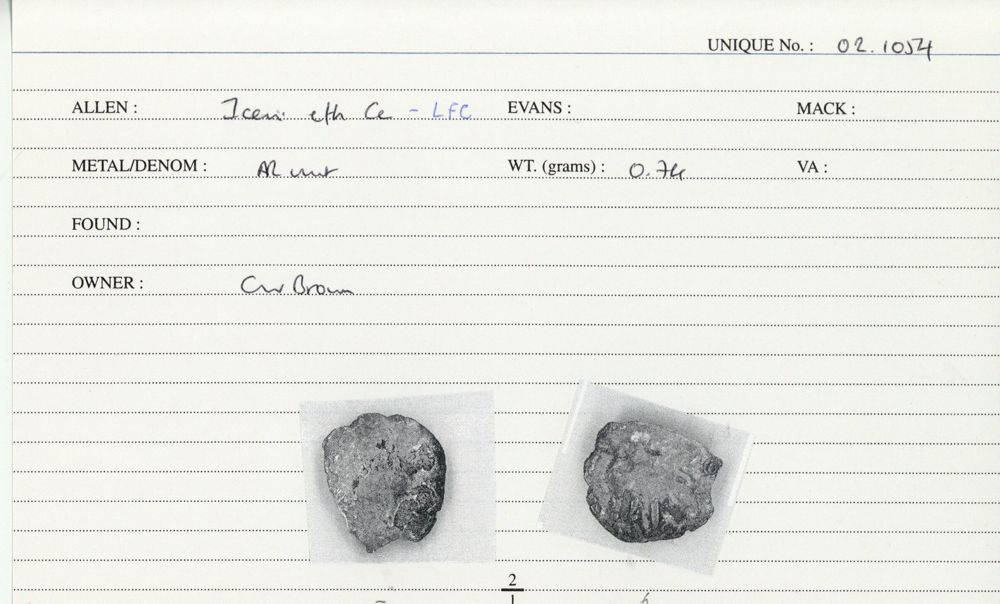 UNIQUE No. : 02.1054
ALLEN : Iceni eth Ce - LFC EVANS : MACK :
METAL/DENOM : AR unit WT. (grams) : 0.74 VA :
FOUND :
OWNER : CW Brown
2
1